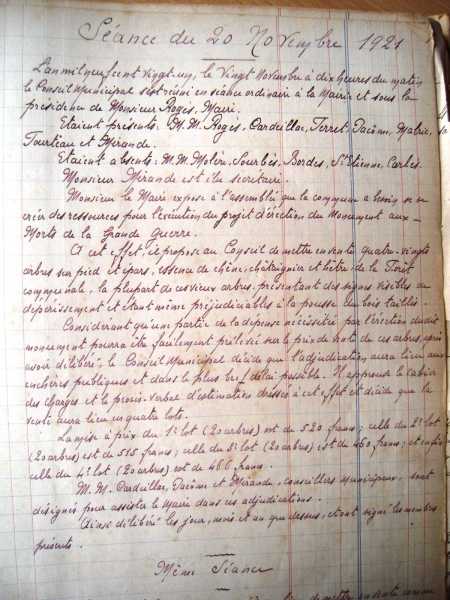 Séance du 20 Novembre 1921
L'an mil neuf cent vingt-un, le Vingt Novembre à dix heures du matin
le Conseil Municipal s'est réuni en séance ordinaire à la Mairie et sous la
présidence de Monsieur Rogès, Maire.
Etaient présents: M.M. Rogès, Cardeillac, Ferret, Pacôme, Matrie,
Tourteau et Mirande.
Etaient absents: M.M. Molère, Sourbès, Bordes, St Etienne, Carles.
Monsieur Mirande est élu secrétaire.
Monsieur le Maire expose à l'assemblée que la commune a besoin de se
créer des ressources pour l'exécution du projet d'érection du Monument aux
Morts de la Grande Guerre.
A cet effet, il propose au Conseil de mettre en vente quatre-vingts
arbres sur pied et épars, essence de chêne, châtaignier et hêtre de la Forêt
communale, la plupart de ces vieux arbres, présentant des signes visibles de
dépérissement et étant même préjudiciables à la pousse du bois taillis.
Considérant qu'une partie de la dépense nécessitée par l'érection dudit
monument pourra être facilement prélevée sur le prix de vente de ces arbres, après
avoir délibéré, le Conseil Municipal décide que l'adjudication aura lieu aux
enchères publiques et dans le plus bref délai possible. Il approuve le cahier
des charges et le procès-verbal d'estimation dressés à cet effet et décide que la
vente aura lieu en quatre lots.
La mise à prix du 1er lot (20 arbres) est de 520 francs; celle du 2e lot
(20 arbres) est de 515 francs; celle du 3e lot (20 arbres) est de 460 francs; et enfin
celle du 4e lot (20 arbres) est de 466 francs.
M.M. Cardeillac, Pacôme et Mirande, conseillers Municipaux, sont
désignés pour assister le Maire dans ces adjudications.
Ainsi délibéré les jour, mois et an que dessus, et ont signé les membres
présents.
Même Séance
de mettre en vente comme